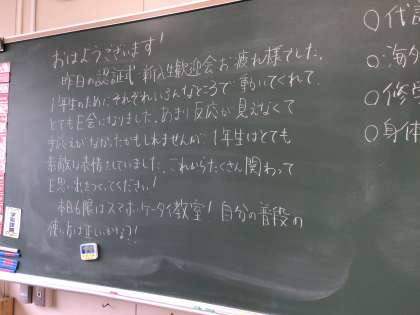 おはようございます！
昨日の認証式・新入生歓迎会お疲れ様でした。
1年生のためにそれぞれいろんなところで動いてくれて、
とても良い会になりました。あまり反応が見えなくて
手応えがなかったかもしれませんが、1年生はとても
素敵な表情をしていました。これからたくさん関わって
良い思い出をつくってください！
本日6限はスマホ・ケータイ教室！自分の普段の
使い方は正しいかな？！
○代
○海外
○修学
○身体